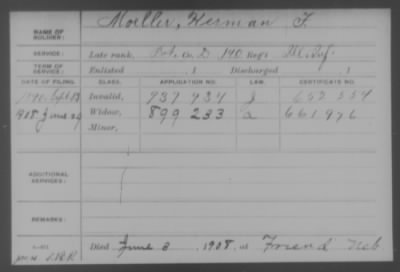 Moeller, Herman F.
NAME OF SOLDIER:
SERVICE: Late rank, Pvt. Co. D 140 Reg't Ill. Inf.
TERM OF SERVICE: Enlisted , 1 Discharged , 1
DATE OF FILING. CLASS. APPLICATION NO. LAW. CERTIFICATE NO.
1890 Sept 13 Invalid, 937 934
1908 June 29 Widow, 899 233 661 976
Minor,
ADDITIONAL SERVICES:
REMARKS:
Died June 3, 1908, at Friend Neb